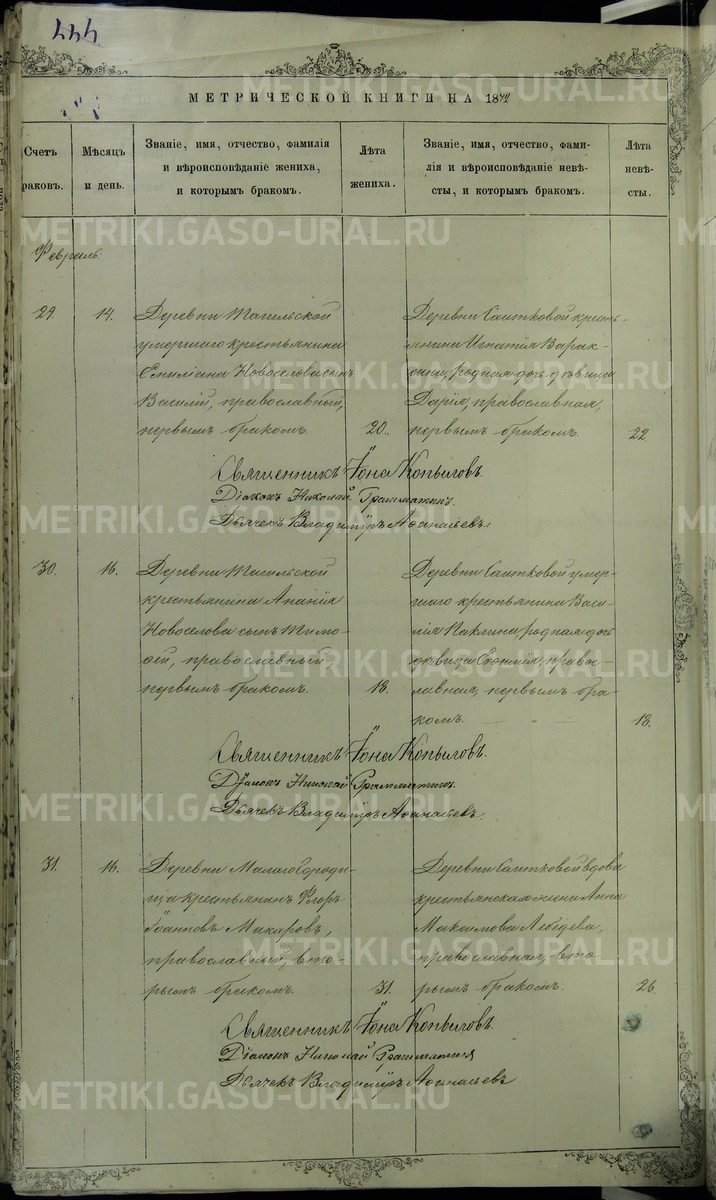 444
METRIKI.GASO-URAL.RU METRIKI.GASO-URAL.RU
МЕТРИЧЕСКОЙ КНИГИ НА 1872
Счетъ
раковъ.
Мѣсяцъ
и день.
Званіе, имя, отчество, фамилія
и вѣроисповѣданіе жениха,
и которымъ бракомъ.
Лѣта
жениха.
Званіе, имя, отчество, фами-
лія и вѣроисповѣданіе невѣ-
сты, и которымъ бракомъ.
Лѣта
невѣ-
сты.
METRIKI.GASO-URAL.RU
Февраль.
29.
14.
Деревни Тагильской
умершаго крестьянина
Емиліана Новоселова сынъ
Василій, православный,
первымъ бракомъ.
20.
Деревни Саитковой кресть-
янина Игнатія Варак-
сина, родная дочь дѣвица
Дарія, православная,
первымъ бракомъ.
22.
Священникъ Іона Копыловъ.
Діаконъ Николай Грамматинъ.
Дьячекъ Владиміръ Аѳанасьевъ.
30.
16.
Деревни Тагильской
крестьянина Ананія
Новоселова сынъ Тимо-
ѳей, православный
первымъ бракомъ.
18.
Деревни Саитковой умер-
шаго крестьянина Васи-
лія Паклина, родная дочь
дѣвица право-
славная, первымъ бра-
комъ.
18.
Священникъ Іона Копыловъ.
Діаконъ Николай Грамматинъ.
Дьячекъ Владиміръ Аѳанасьевъ.
31.
16.
Деревни Малаго Городи-
ща крестьянинъ Флоръ
Іоанновъ Макаровъ,
православный, вто-
рымъ бракомъ.
31.
Деревни Саитковой вдова
крестьянская жена Анна
Максимова Лебедева,
православная, вто-
рымъ бракомъ.
26.
Священникъ Іона Копыловъ.
Діаконъ Николай Грамматинъ
Дьячекъ Владиміръ Аѳанасьевъ